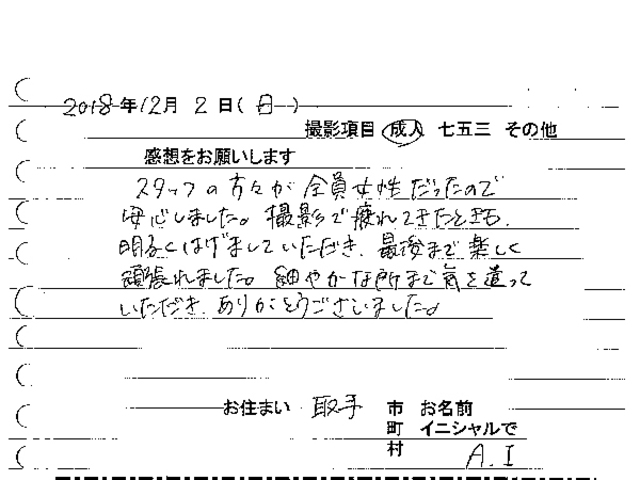 2018年12月2日(日)
撮影項目 成人 七五三 その他
感想をお願いします
スタッフの方々が全員女性だったので
安心しました。撮影で疲れてきたときも、
明るくはげましていただき、最後まで楽しく
頑張れました。細やかな所まで気を遣って
いただき、ありがとうございました。
お住まい 取手 市 お名前
町 イニシャルで
村 A.I